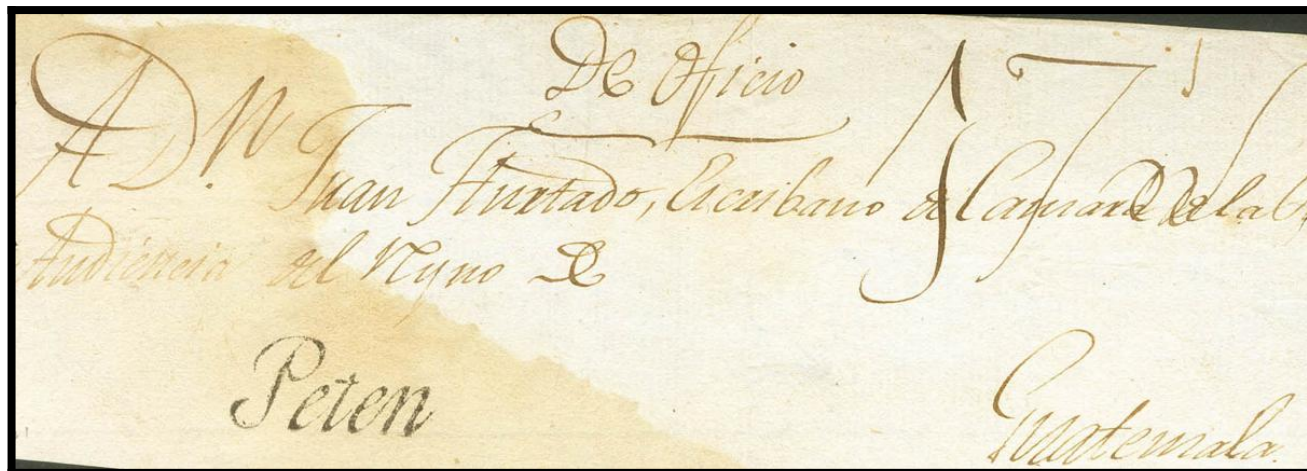 De Oficio
A Dn. Juan Hurtado, Escribano de Camara de la
Audiencia del Reyno de
Peten
Guatemala.